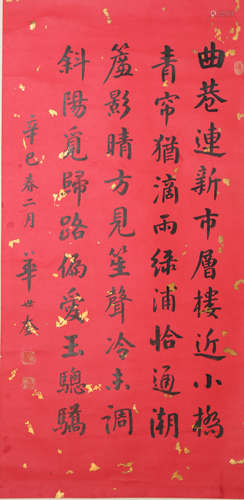 曲巷連新市層樓近小橋
青帘猶滴雨綠浦恰通潮
簾影晴方見笙聲冷未調
斜陽覓歸路偏愛玉驄驕
辛巳春二月 華世奎